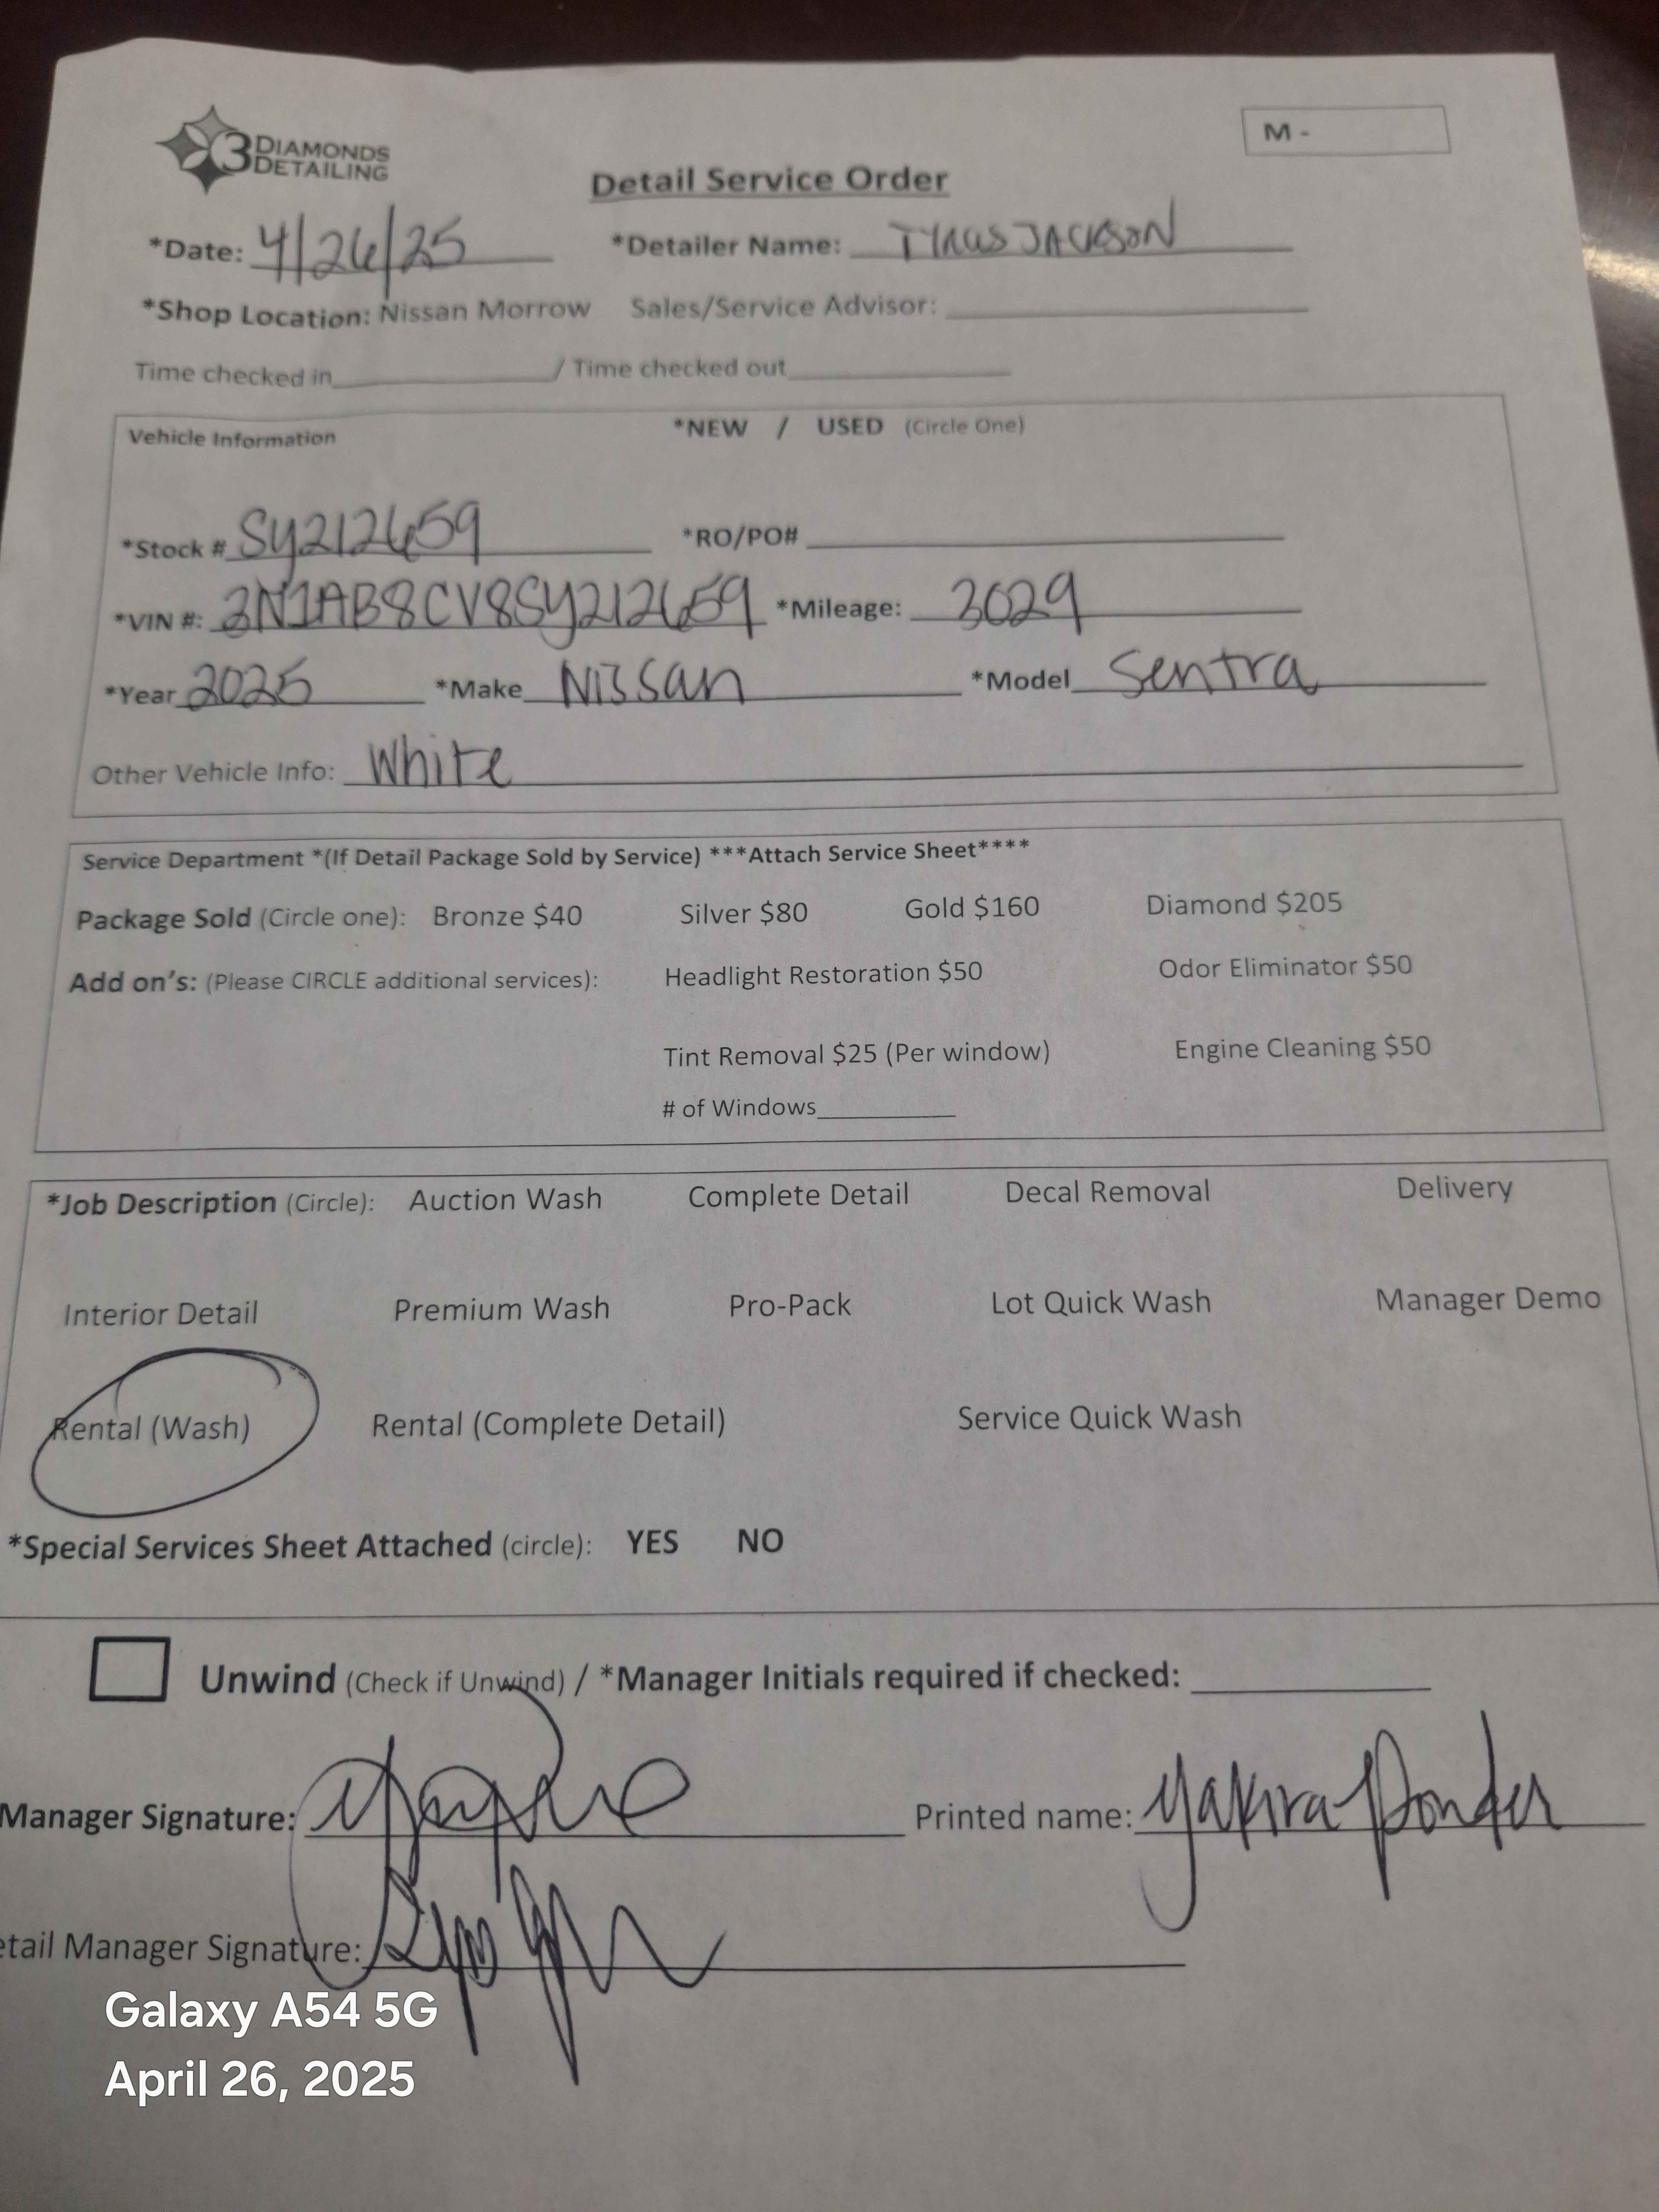 3 DIAMONDS DETAILING
M -
Detail Service Order
*Date: 4/26/25 *Detailer Name: TYRUS JACKSON
*Shop Location: Nissan Morrow Sales/Service Advisor:
Time checked in / Time checked out
Vehicle Information *NEW / USED (Circle One)
*Stock # SY212659 *RO/PO#
*VIN #: 3N1AB8CV8SY212659 *Mileage: 3029
*Year 2025 *Make Nissan *Model Sentra
Other Vehicle Info: White
Service Department *(If Detail Package Sold by Service) ***Attach Service Sheet****
Package Sold (Circle one): Bronze $40 Silver $80 Gold $160 Diamond $205
Add on's: (Please CIRCLE additional services): Headlight Restoration $50 Odor Eliminator $50
Tint Removal $25 (Per window) Engine Cleaning $50
# of Windows
*Job Description (Circle): Auction Wash Complete Detail Decal Removal Delivery
Interior Detail Premium Wash Pro-Pack Lot Quick Wash Manager Demo
Rental (Wash) Rental (Complete Detail) Service Quick Wash
*Special Services Sheet Attached (circle): YES NO
Unwind (Check if Unwind) / *Manager Initials required if checked:
Manager Signature: Printed name: Yakira Ponder
etail Manager Signature:
Galaxy A54 5G
April 26, 2025